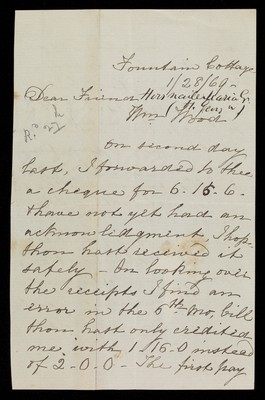 Fountain Cottage
1/28/69
Dear Friend
Wm Wood
On second day
last, I forwarded to thee
a cheque for 6-15-6-
& have not yet had an
acknowledgment I hop
thou hast received it
safely - On looking over
the receipts I find an
error in the 6th mo, bill
thou hast only credited
me with 1-15-0 instead
of 2-0-0- The first pay